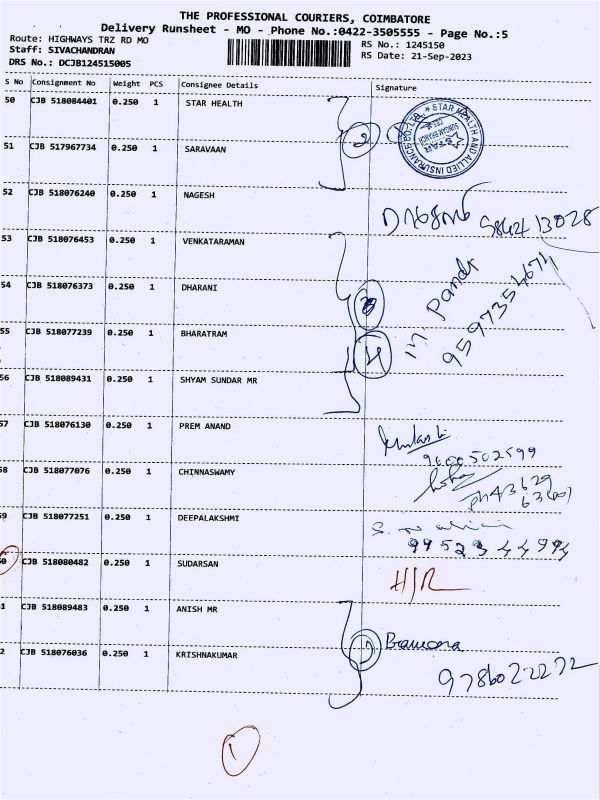 THE PROFESSIONAL COURIERS, COIMBATORE
Delivery Runsheet - MO - Phone No.:0422-3505555 - Page No.:5
Route: HIGHWAYS TRZ RD MO
RS No.: 1245150
Staff: SIVACHANDRAN
RS Date: 21-Sep-2023
DRS No.: DCJB124515005
S No Consignment No Weight PCS Consignee Details Signature
50 CJB 518084401 0.250 1 STAR HEALTH
2
STAR HEALTH AND ALLIED INSURANCE CO. LTD.
51 CJB 517967734 0.250 1 SARAVAAN
52 CJB 518076240 0.250 1 NAGESH
53 CJB 518076453 0.250 1 VENKATARAMAN
54 CJB 518076373 0.250 1 DHARANI
9597354674
55 CJB 518077239 0.250 1 BHARATRAM
4
56 CJB 518089431 0.250 1 SHYAM SUNDAR MR
57 CJB 518076130 0.250 1 PREM ANAND
9600502599
58 CJB 518077076 0.250 1 CHINNASWAMY
59 CJB 518077251 0.250 1 DEEPALAKSHMI
0 CJB 518080482 0.250 1 SUDARSAN
1 CJB 518089483 0.250 1 ANISH MR
2 CJB 518076036 0.250 1 KRISHNAKUMAR
9786022272
1